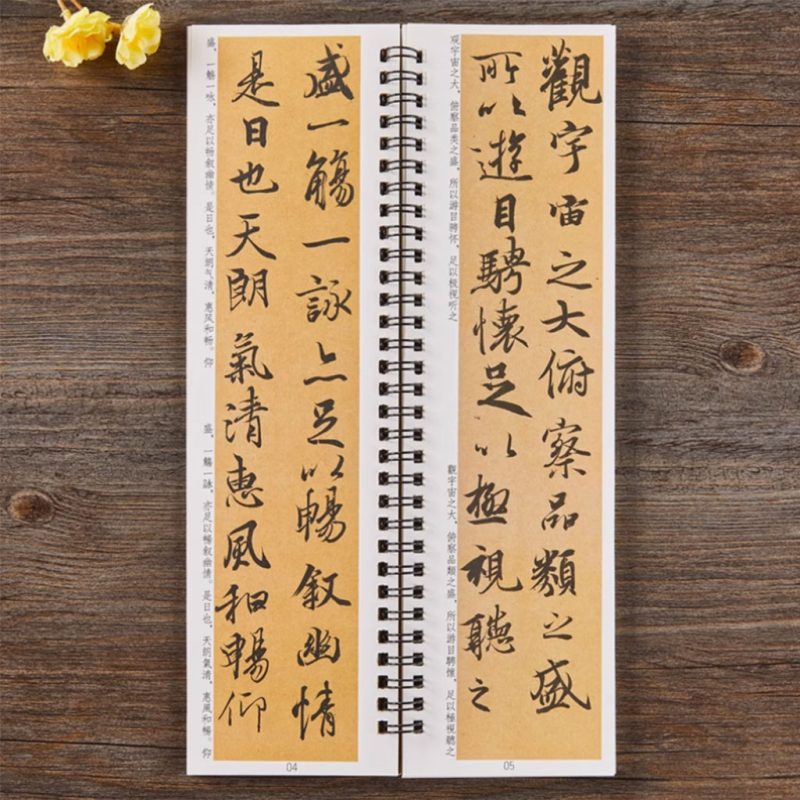 盛一觴一詠亦足以暢叙幽情
是日也天朗氣清惠風和暢仰
盛，一觞一咏，亦足以畅叙幽情。是日也，天朗气清，惠风和畅。仰
盛，一觴一詠，亦足以暢叙幽情。是日也，天朗氣清，惠風和暢。仰
04
觀宇宙之大俯察品類之盛
所以遊目騁懷足以極視聽之
观宇宙之大，俯察品类之盛，所以游目骋怀，足以极视听之
觀宇宙之大，俯察品類之盛，所以游目騁懷，足以極視聽之
05